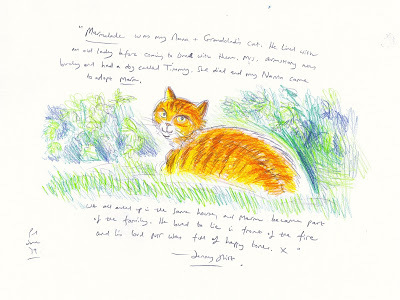 "Marmalade was my Nana + Grandad's cat. He lived with
an old lady before coming to live with them. Mrs. Armstrong was
lovely and had a dog called Timmy. She died and my Nana came
to adopt Marm.
We all ended up in the same house, and Marm became part
of the family. He loved to lie in front of the fire
and his loud purr was full of happy tones. x "
— Jenny